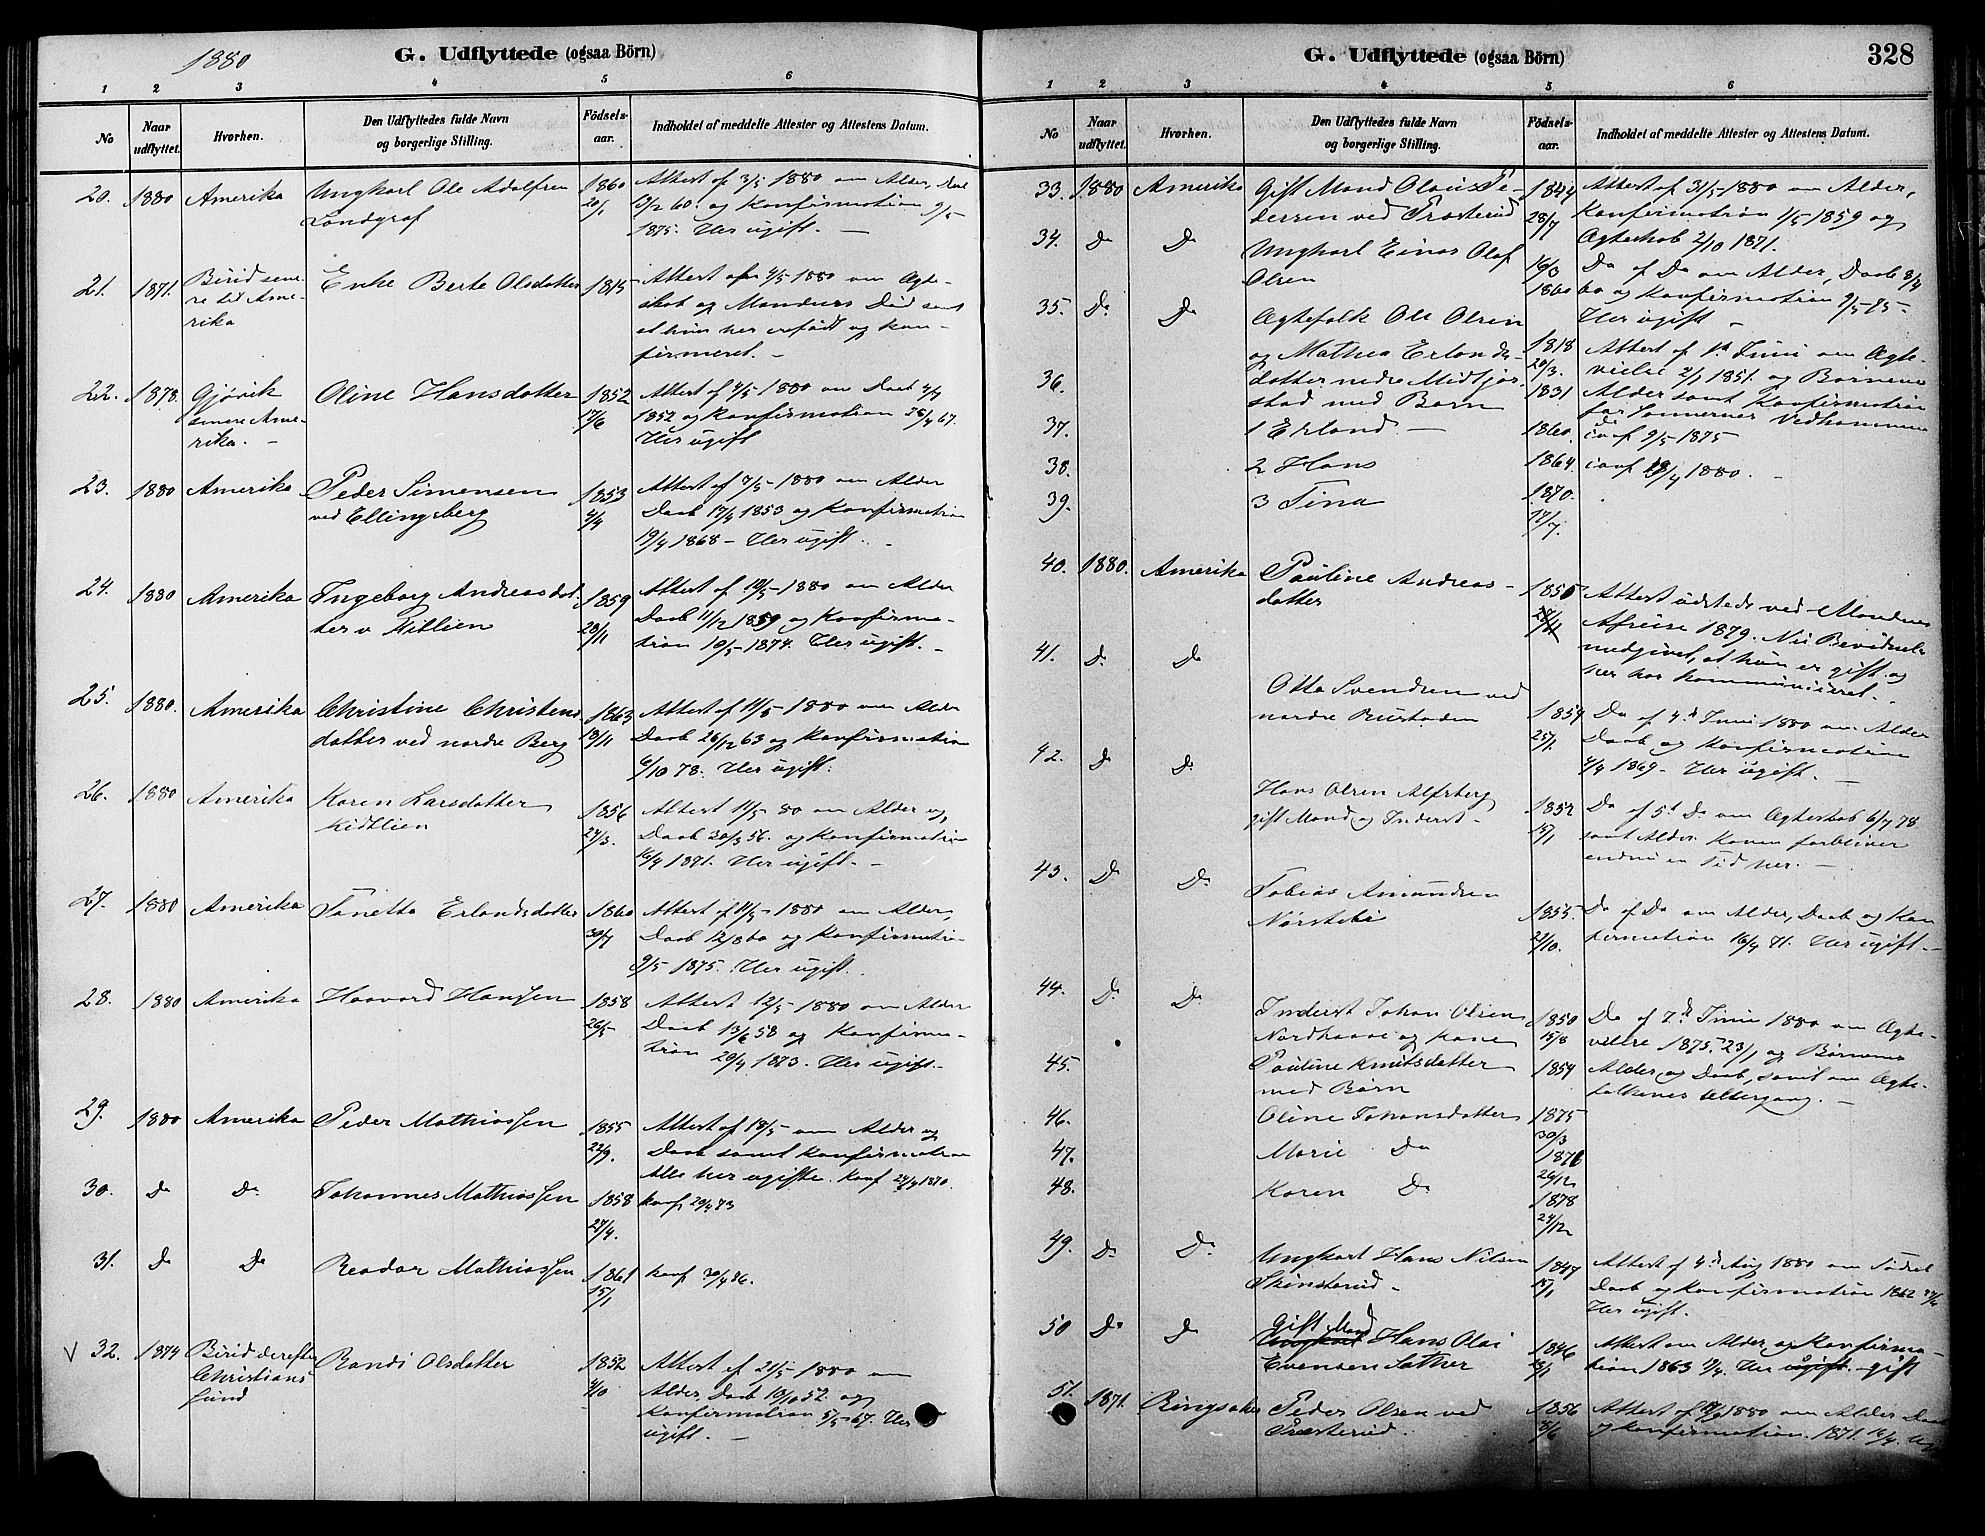 1880
G. Udflyttede (ogsaa Börn)
1 2 3 4 5 6
No
Naar udflyttet.
Hvorhen.
Den Udflyttedes fulde Navn og borgerlige Stilling.
Födsels-aar.
Indholdet af meddelte Attester og Attestens Datum.
20. 1880 Amerika Ungkarl Ole Adolfsen 1860 Attest af 3/5 1880 om Alder, Daab
Landgraf 20/1 60. og Konfirmation 9/5
1875. Her ugift. —
21. 1871. Birid sene- Enke Berte Olsdatter 1815 Attest af 4/5 1880 om Ægte-
re til Ame- skab og Mandens Död samt
rika at hun her er födt og kon-
firmeret. —
22. 1878. Gjövik Oline Hansdatter 1852 Attest af 4/5 1880 om Daab 4/7
senere Ame- 17/6 1852 og Konfirmation 28/4 67.
rika. — Her ugift
23. 1880 Amerika Peder Simensen 1853 Attest af 7/5 1880 om Alder
ved Ellingsberg 4/4 Daab 17/4 1853 og Konfirmation
19/4 1868 – Her ugift. –
24. 1880 Amerika Ingeborg Andreasdat- 1859 Attest af 10/5 1880 om Alder
ter v Kitlien 28/11 Daab 11/12 1859 og Konfirma-
tion 10/5 1874. Her ugift. –
25. 1880. Amerika Christine Christens 1863 Attest af 11/5 1880 om Alder
datter ved nordre Berg 13/11 Daab 26/12 63 og Konfirmation
6/10 78. Her ugift.
26. 1880 Amerika Karen Larsdatter 1856 Attest 11/5 80 om Alder og
Kidtlien 24/3. Daab 30/3 56. og Konfirmation
16/4 1871. Her ugift. –
27. 1880 Amerika Tonetta Erlandsdatter 1860 Attest af 11/5 1880 om Alder,
30/7 Daab 12/8 60 og Konfirmation
9/5 1875. Her ugift.
28. 1880 Amerika Haavard Hansen 1858 Attest 12/5 1880 om Alder
26/5 Daab 13/6 58 og Konfirma-
tion 20/4 1873. Her ugift. –
29. 1880 Amerika Peder Mathiassen 1855 Attest af 18/5 om Alder og
22/9. Daab samt Konfirmation
Alle her ugifte. Konf 24/4 1870.
30. Do Do Johannes Mathiassen 1858 Konf 20/4 73
27/4.
31. Do Do Reodor Mathiassen 1861 Konf 30/4 86.
15/1
V 32. 1874 Birid derefter Randi Olsdatter 1852 Attest af 21/5 1880 om
Christians 4/10 Alder, Daab 10/10 52 og
sund Konfirmation 5/5 67. Her
ugift. –
G. Udflyttede (ogsaa Börn)
328
1 2 3 4 5 6
No
Naar udflyttet.
Hvorhen.
Den Udflyttedes fulde Navn og borgerlige Stilling.
Födsels-aar.
Indholdet af meddelte Attester og Attestens Datum.
33. 1880 Amerika Gift Mand Olaus Pe- 1844 Attest af 31/5 1880 om Alder,
dersen ved Præsterud 28/7 Konfirmation 1/5 1859 og
Ægteskab 2/10 1871.
34. Do Do Ungkarl Einar Olaf 16/3 Do af Do om Alder, Daab 8/4
Olsen 1860 60 og Konfirmation 9/5 75–
Her ugift –
35. Do Do Ægtefolk Ole Olsen 1818 Attest af 1st Juni om Ægte-
og Mathea Erlands- 20/3. vielse 2/1 1851. og Börnene
36. datter nedre Midtfjør- 1831 Alder samt Konfirmation
stad med Börn for Sönnernes Vedkommende
37. 1 Erland – 1860. conf 9/5 1875
38. 2 Hans 1864. conf 18/4 1880. –
39. 3 Tina 1870.
17/7.
40. 1880. Amerika Pauline Andreas- 1855 Attest udstedt ved Mandens
datter Afreise 1879. Nu Bevidnels
medgivet, at hun er gift og
her har kommuniceret.
41. Do Do Otto Svendsen ved 1854 Do af 4de Juni 1880 om Alder
nordre Rustaden 25/1. Daab og Konfirmation
4/4 1869– Her ugift. –
42. Do Do Hans Olsen Alfsberg 1852 Do af 5t Do om Ægteskab 6/7 78
gift Mand og Inderst– 15/1 samt Alder. Konen forbliver
endnu en Tid her. –
43. Do Do Tobias Amundsen 1855. Do af Do om Alder, Daab og Kon
Nörstebö 21/10. firmation 16/4 71. Her ugift. –
44. Do Do Inderst Johan Olsen 1850 Do af 7de Juni 1880 om Ægte-
Nordhaave og Kone 15/8 vielse 1875. 23/1 og Börnenes
45. Pauline Knutsdatter 1854 Alder og Daab, samt om Ægte-
med Börn folkenes Altergang. –
46. Oline Johansdatter 1875
30/3
47. Marie Do 1876
26/12
48. Karen Do 1878
24/12
49. Do Do Ungkarl Hans Nilsen 1847 Attest af 4de Aug 1880 om Födsel
Skinsterud– 15/1 Daab og Konfirmation 1862
Her ugift.
50 Do Do Gift Mand Hans Olai 1846 Attest om Alder og Konfirma-
Evensen Sather 13/1 tion 1863 Her ugift. – gift
51. 1871. Ringsaker Peder Olsen ved 1856 Attest af 1880 om Alder Daab
Præsterud. 8/6 og Konfirmation. 1871.